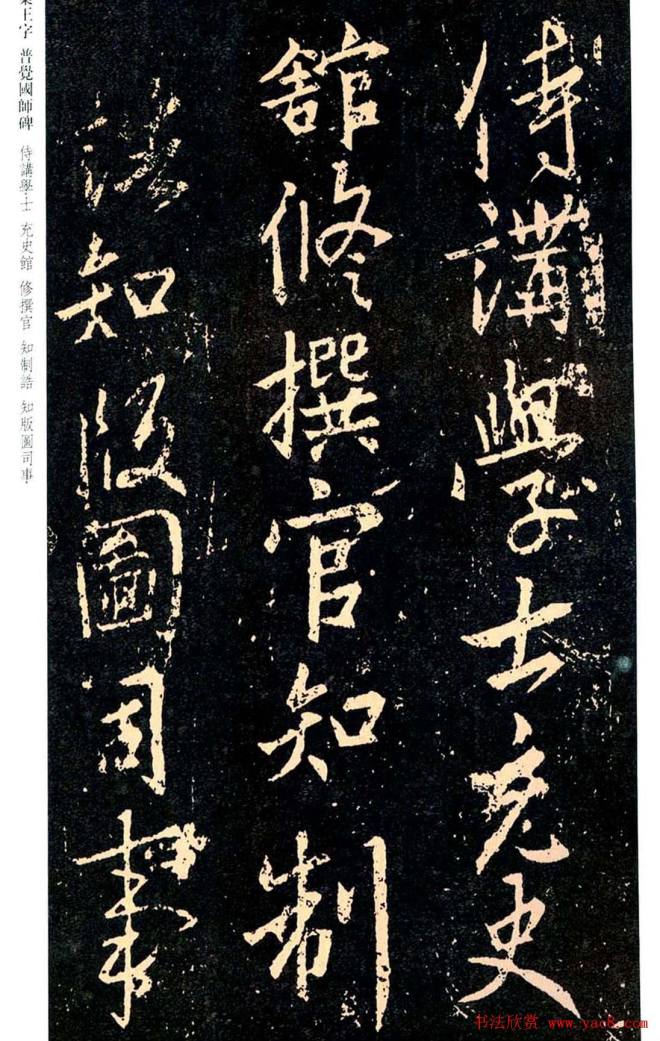 侍講學士充史
舘修撰官知制
誥知版圖司事
集王字 普覺國師碑 侍講學士 充史館 修撰官 知制誥 知版圖司事
书法欣赏 www.yac8.com